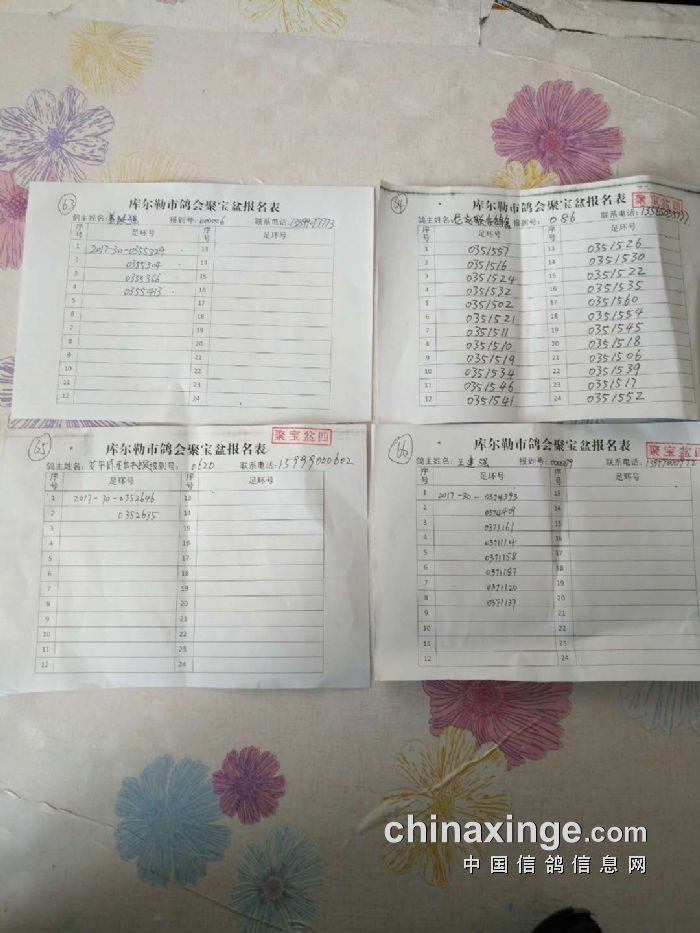 63
库尔勒市鸽会聚宝盆报名表
鸽主姓名: 报到号:000006 联系电话:
序号 足环号 序号 足环号
1 2017-30-0355329 13
2 0355304 14
3 0355366 15
4 0355413 16
5 17
6 18
7 19
8 20
9 21
10 22
11 23
12 24
64
库尔勒市鸽会聚宝盆报名表 聚宝盆
鸽主姓名: 报到号: 086 联系电话:
序号 足环号 序号 足环号
1 0351557 13 0351526
2 0351516 14 0351530
3 0351524 15 0351522
4 0351532 16 0351535
5 0351502 17 0351560
6 0351521 18 0351554
7 0351511 19 0351545
8 0351510 20 0351518
9 0351519 21 0351506
10 0351534 22 0351539
11 0351546 23 0351517
12 0351541 24 0351552
65
聚宝盆四
库尔勒市鸽会聚宝盆报名表
鸽主姓名: 报到号: 0620 联系电话:15999000602
序号 足环号 序号 足环号
1 2017-30-0352646 13
2 0352635 14
3 15
4 16
5 17
6 18
7 19
8 20
9 21
10 22
11 23
12 24
66
库尔勒市鸽会聚宝盆报名表 聚宝盆四
鸽主姓名: 王建强 报到号:000089 联系电话:
序号 足环号 序号 足环号
1 2017-30-0374393 13
2 0374409 14
3 0371161 15
4 16
5 0371158 17
6 0371187 18
7 0371120 19
8 0371139 20
9 21
10 22
11 23
12 24
chinaxinge.com
中国信鸽信息网